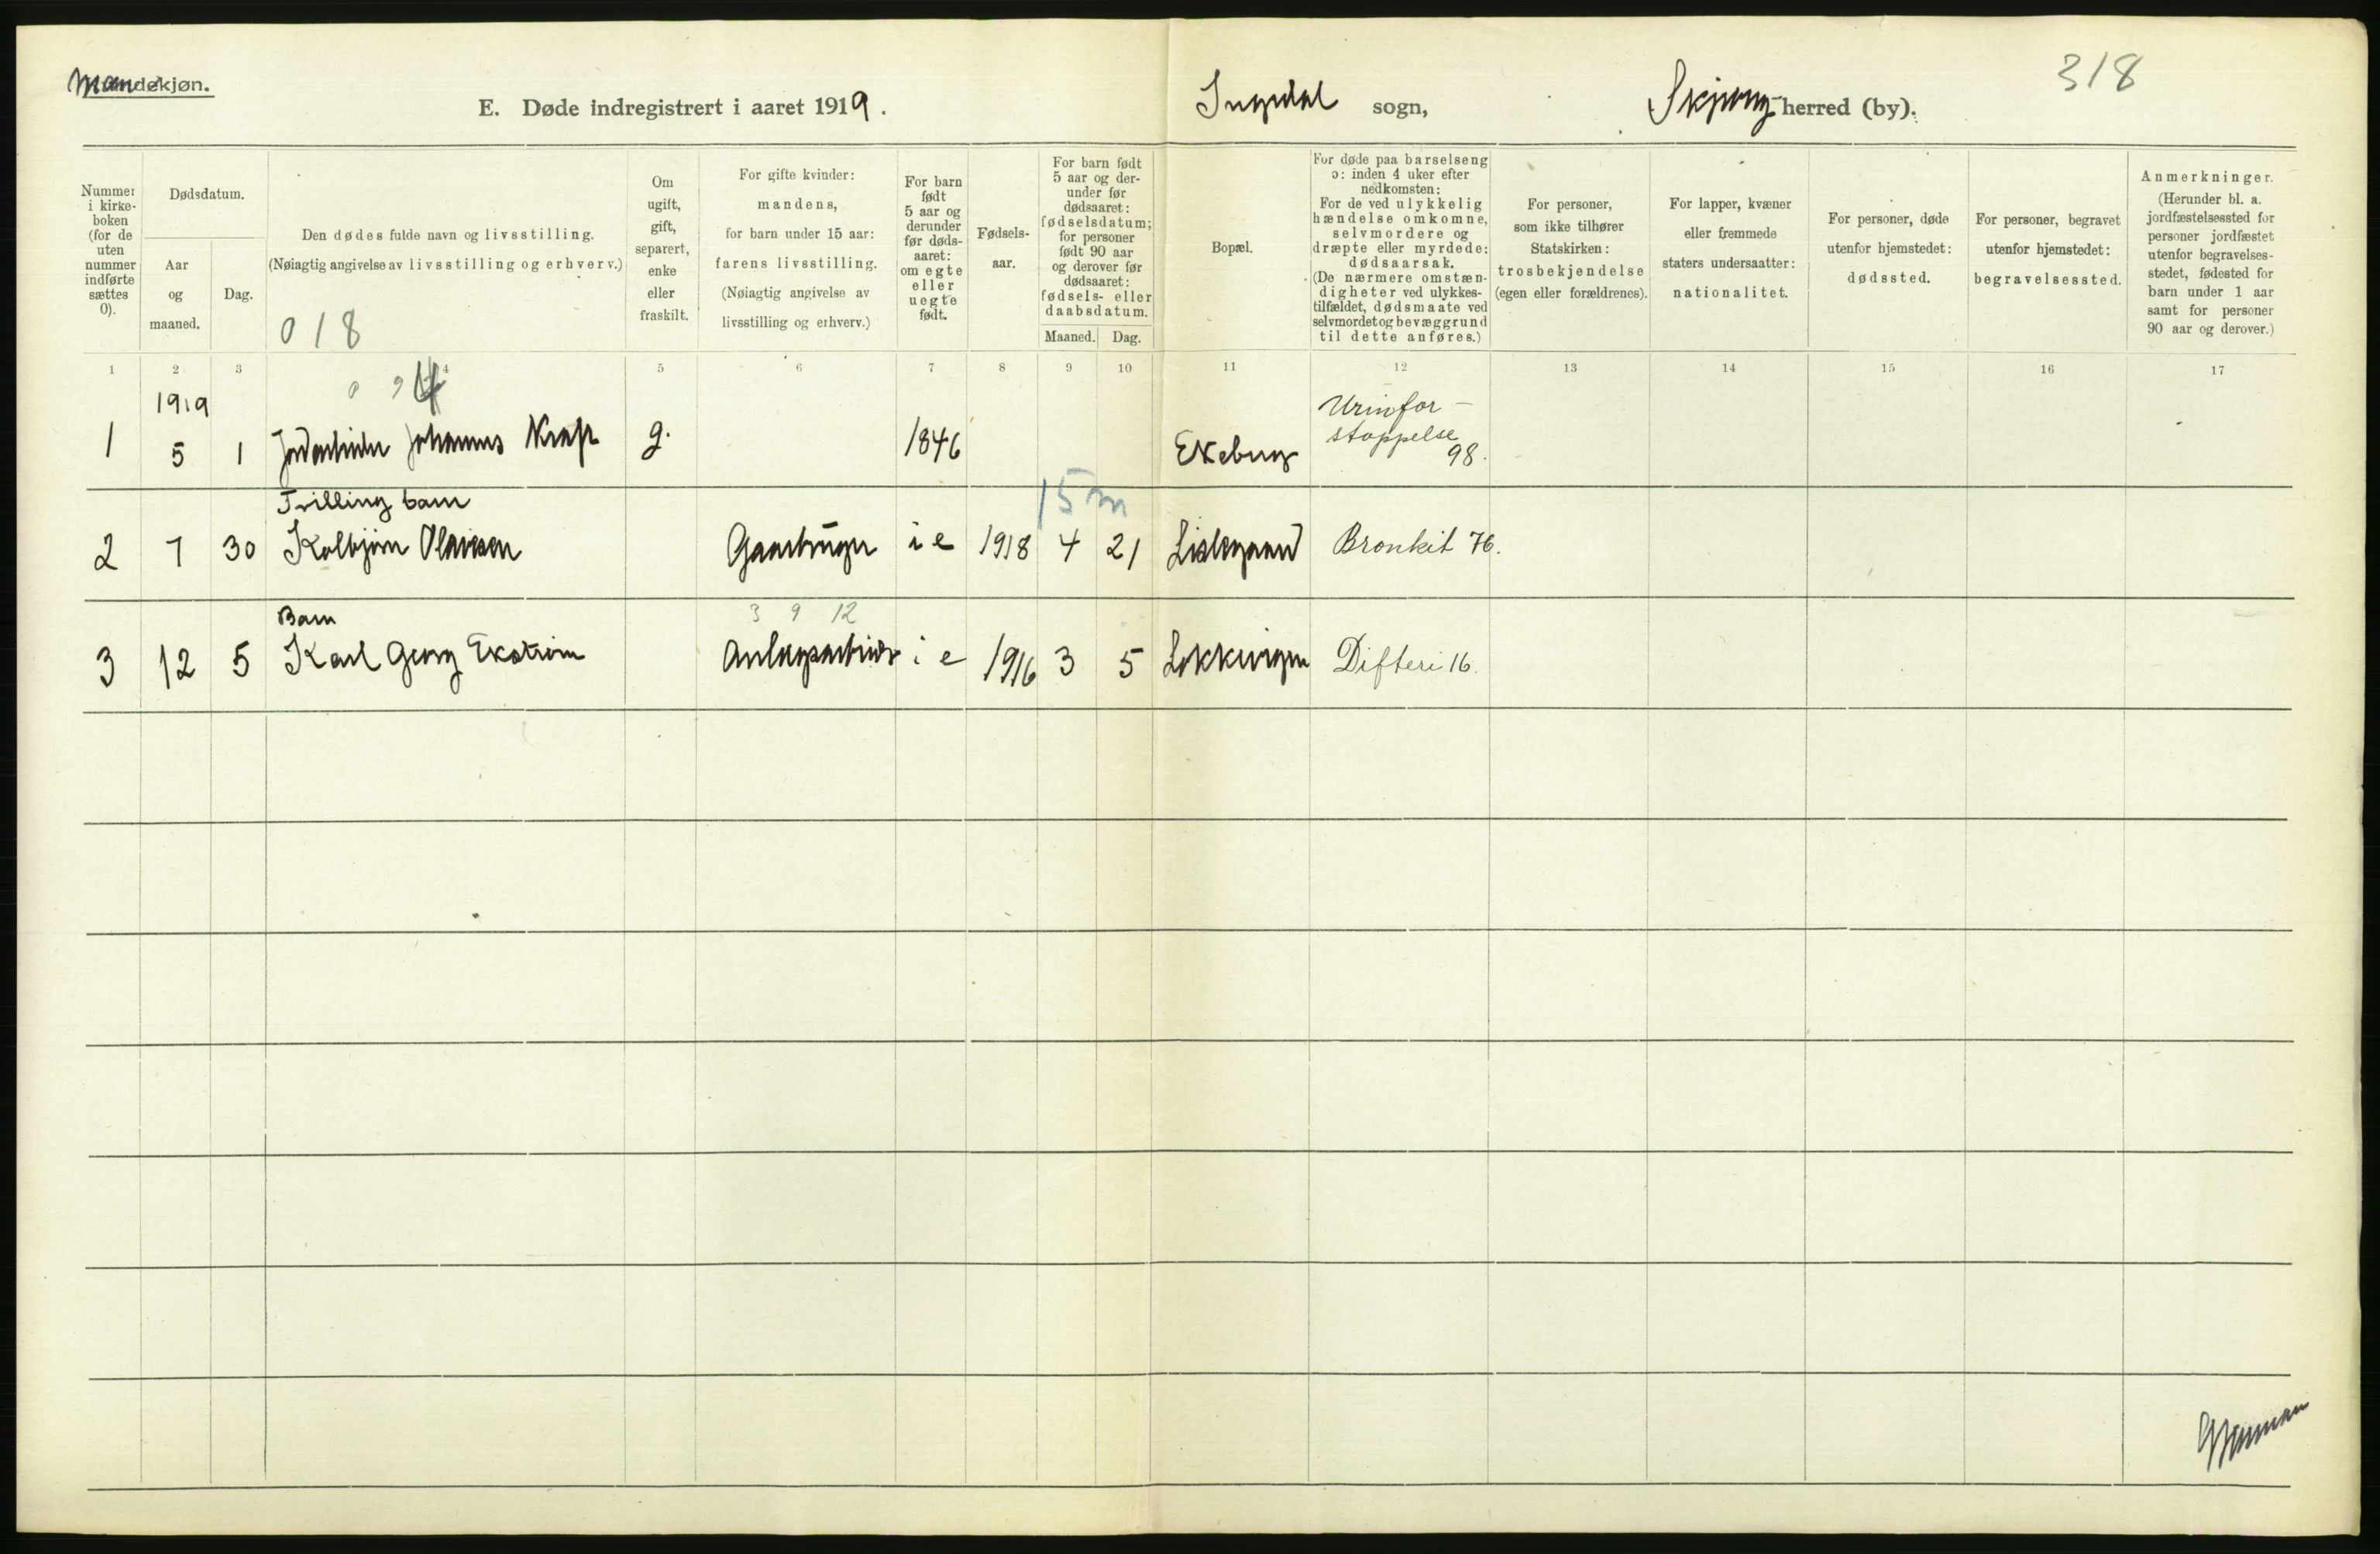 Mandekjøn.
E. Døde indregistrert i aaret 1919.
Ingedal sogn, Skjeberg herred (by).
318
Nummer i kirkeboken (for de uten nummer indførte sættes 0).
Dødsdatum.
Aar og maaned.
Dag.
Den dødes fulde navn og livsstilling.
(Nøiagtig angivelse av livsstilling og erhverv.)
018
Om ugift, gift, separert, enke eller fraskilt.
For gifte kvinder: mandens, for barn under 15 aar: farens livsstilling.
(Nøiagtig angivelse av livsstilling og erhverv.)
For barn født 5 aar og derunder før dødsaaret: om egte eller uegte født.
Fødselsaar.
For barn født 5 aar og derunder før dødsaaret: fødselsdatum; for personer født 90 aar og derover før dødsaaret: fødsels- eller daabsdatum.
Maaned. Dag.
Bopæl.
For døde paa barselseng ɔ: inden 4 uker efter nedkomsten: For de ved ulykkelig hændelse omkomne, selvmordere og dræpte eller myrdede: dødsaarsak.
(De nærmere omstændigheter ved ulykkestilfældet, dødsmaate ved selvmordet og bevæggrund til dette anføres.)
For personer, som ikke tilhører Statskirken: trosbekjendelse (egen eller forældrenes).
For lapper, kvæner eller fremmede staters undersaatter: nationalitet.
For personer, døde utenfor hjemstedet: dødssted.
For personer, begravet utenfor hjemstedet: begravelsessted.
Anmerkninger.
(Herunder bl. a. jordfæstelsessted for personer jordfæstet utenfor begravelsesstedet, fødested for barn under 1 aar samt for personer 90 aar og derover.)
1 2 3 4 5 6 7 8 9 10 11 12 13 14 15 16 17
1919
1 5 1 Jordarbeider Johannes g. 1846 Ekeberg Urinforstoppelse 98.
15 m
Trilling barn
2 7 30 Kolbjørn Olavesen Gaardbruger i e 1918 4 21 Lislegaard Bronkit 76.
Barn
3 9 12
3 12 5 Karl Georg Ekstrøm Anlægsarbeider i e 1916 3 5 Løkkevigen Difteri 16.